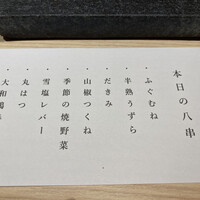 本日の八串
・ふぐむね
・半熟うずら
・だきみ
・山椒つくね
・季節の焼野菜
・雪塩レバー
・丸はつ
大和鶏